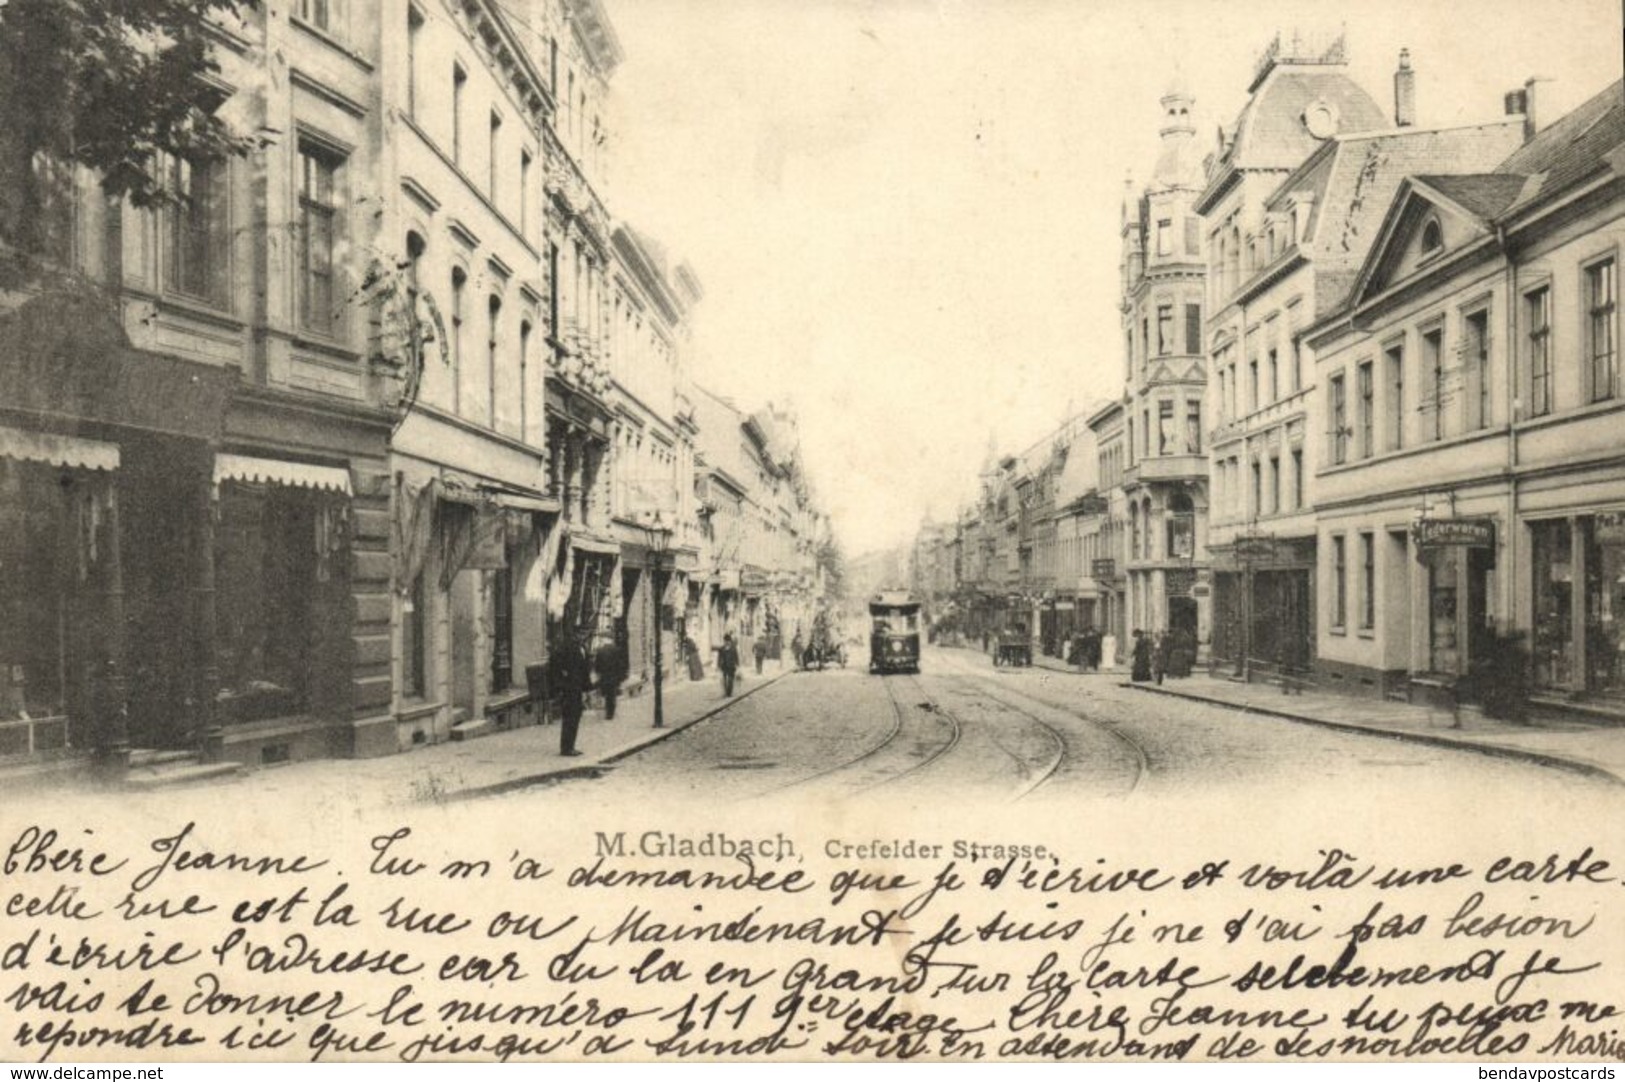 Lederwaren
M. Gladbach, Crefelder Strasse.
Chère Jeanne. Tu m'a demandée que je t'écrive et voilà une carte.
cette rue est la rue ou Maintenant je suis je ne t'ai pas besion
d'écrire l'adresse car tu la en grand sur la carte seleument je
vais te donner le numéro 111 1er etage. Chère Jeanne tu peux me
repondre ici que jusqu'a lundi soir. En attendant de tes nouvelles Marie
delcampe.net
bendavpostcards